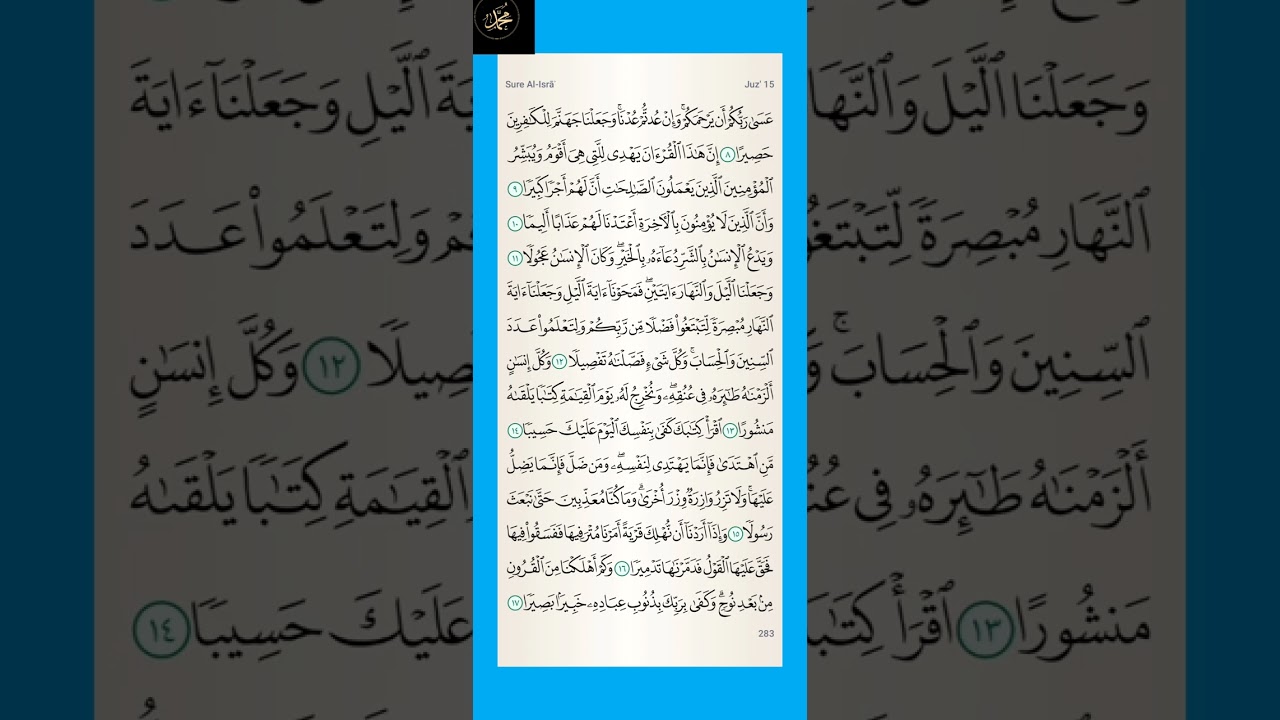 محمد
Sure Al-Isrā'
Juz' 15
عَسَىٰ رَبُّكُمْ أَن يَرْحَمَكُمْ ۚ وَإِنْ عُدتُّمْ عُدْنَا ۘ وَجَعَلْنَا جَهَنَّمَ لِلْكَـٰفِرِينَ
حَصِيرًا ٨ إِنَّ هَـٰذَا ٱلْقُرْءَانَ يَهْدِى لِلَّتِى هِىَ أَقْوَمُ وَيُبَشِّرُ
ٱلْمُؤْمِنِينَ ٱلَّذِينَ يَعْمَلُونَ ٱلصَّـٰلِحَـٰتِ أَنَّ لَهُمْ أَجْرًا كَبِيرًا ٩
وَأَنَّ ٱلَّذِينَ لَا يُؤْمِنُونَ بِٱلْـَٔاخِرَةِ أَعْتَدْنَا لَهُمْ عَذَابًا أَلِيمًا ١٠
وَيَدْعُ ٱلْإِنسَـٰنُ بِٱلشَّرِّ دُعَآءَهُۥ بِٱلْخَيْرِ ۖ وَكَانَ ٱلْإِنسَـٰنُ عَجُولًا ١١
وَجَعَلْنَا ٱلَّيْلَ وَٱلنَّهَارَ ءَايَتَيْنِ ۖ فَمَحَوْنَآ ءَايَةَ ٱلَّيْلِ وَجَعَلْنَآ ءَايَةَ
ٱلنَّهَارِ مُبْصِرَةً لِّتَبْتَغُوا۟ فَضْلًا مِّن رَّبِّكُمْ وَلِتَعْلَمُوا۟ عَدَدَ
ٱلسِّنِينَ وَٱلْحِسَابَ ۚ وَكُلَّ شَىْءٍ فَصَّلْنَـٰهُ تَفْصِيلًا ١٢ وَكُلَّ إِنسَـٰنٍ
أَلْزَمْنَـٰهُ طَـٰٓئِرَهُۥ فِى عُنُقِهِۦ ۖ وَنُخْرِجُ لَهُۥ يَوْمَ ٱلْقِيَـٰمَةِ كِتَـٰبًا يَلْقَىٰهُ
مَنشُورًا ١٣ ٱقْرَأْ كِتَـٰبَكَ كَفَىٰ بِنَفْسِكَ ٱلْيَوْمَ عَلَيْكَ حَسِيبًا ١٤
مَّنِ ٱهْتَدَىٰ فَإِنَّمَا يَهْتَدِى لِنَفْسِهِۦ ۖ وَمَن ضَلَّ فَإِنَّمَا يَضِلُّ
عَلَيْهَا ۚ وَلَا تَزِرُ وَازِرَةٌ وِزْرَ أُخْرَىٰ ۗ وَمَا كُنَّا مُعَذِّبِينَ حَتَّىٰ نَبْعَثَ
رَسُولًا ١٥ وَإِذَآ أَرَدْنَآ أَن نُّهْلِكَ قَرْيَةً أَمَرْنَا مُتْرَفِيهَا فَفَسَقُوا۟ فِيهَا
فَحَقَّ عَلَيْهَا ٱلْقَوْلُ فَدَمَّرْنَـٰهَا تَدْمِيرًا ١٦ وَكَمْ أَهْلَكْنَا مِنَ ٱلْقُرُونِ
مِنۢ بَعْدِ نُوحٍ ۗ وَكَفَىٰ بِرَبِّكَ بِذُنُوبِ عِبَادِهِۦ خَبِيرًۢا بَصِيرًا ١٧
283